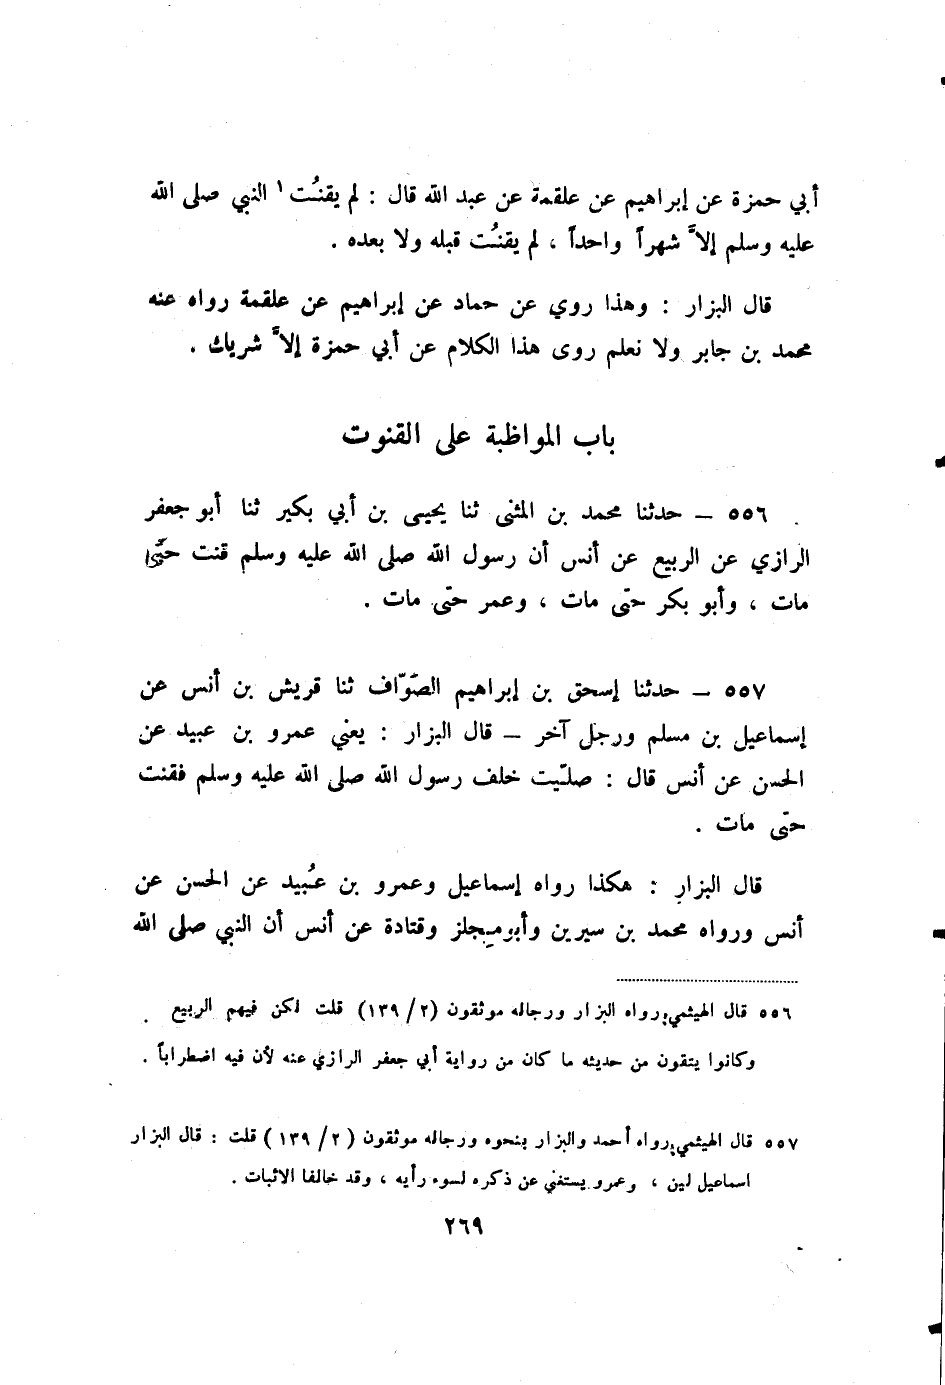 أبي حمزة عن إبراهيم عن علقمة عن عبد الله قال : لم يقنُت ١ النبي صلى الله
عليه وسلم إلاَّ شهراً واحداً ، لم يقنُت قبله ولا بعده .
قال البزار : وهذا روي عن حماد عن إبراهيم عن علقمة رواه عنه
محمد بن جابر ولا نعلم روى هذا الكلام عن أبي حمزة إلاَّ شريك .
باب المواظبة على القنوت
٥٥٦ – حدثنا محمد بن المثنى ثنا يحيى بن أبي بكير ثنا أبو جعفر
الرازي عن الربيع عن أنس أن رسول الله صلى الله عليه وسلم قنت حتّى
مات ، وأبو بكر حتّى مات ، وعمر حتّى مات .
٥٥٧ – حدثنا إسحق بن إبراهيم الصّوّاف ثنا قريش بن أنس عن
إسماعيل بن مسلم ورجل آخر – قال البزار : يعني عمرو بن عبيد عن
الحسن عن أنس قال : صلّيت خلف رسول الله صلى الله عليه وسلم فقنت
حتّى مات .
قال البزار : هكذا رواه إسماعيل وعمرو بن عُبيد عن الحسن عن
أنس ورواه محمد بن سيرين وأبومجلز وقتادة عن أنس أن النبي صلى الله
٥٥٦ قال الهيثمي : رواه البزار ورجاله موثقون (٢/ ١٣٩) قلت لكن فيهم الربيع
وكانوا يتقون من حديثه ما كان من رواية أبي جعفر الرازي عنه لأن فيه اضطراباً .
٥٥٧ قال الهيثمي : رواه أحمد والبزار بنحوه ورجاله موثقون (٢/ ١٣٩) قلت : قال البزار
اسماعيل لين ، وعمرو يستغني عن ذكره لسوء رأيه ، وقد خالفا الاثبات .
٢٦٩